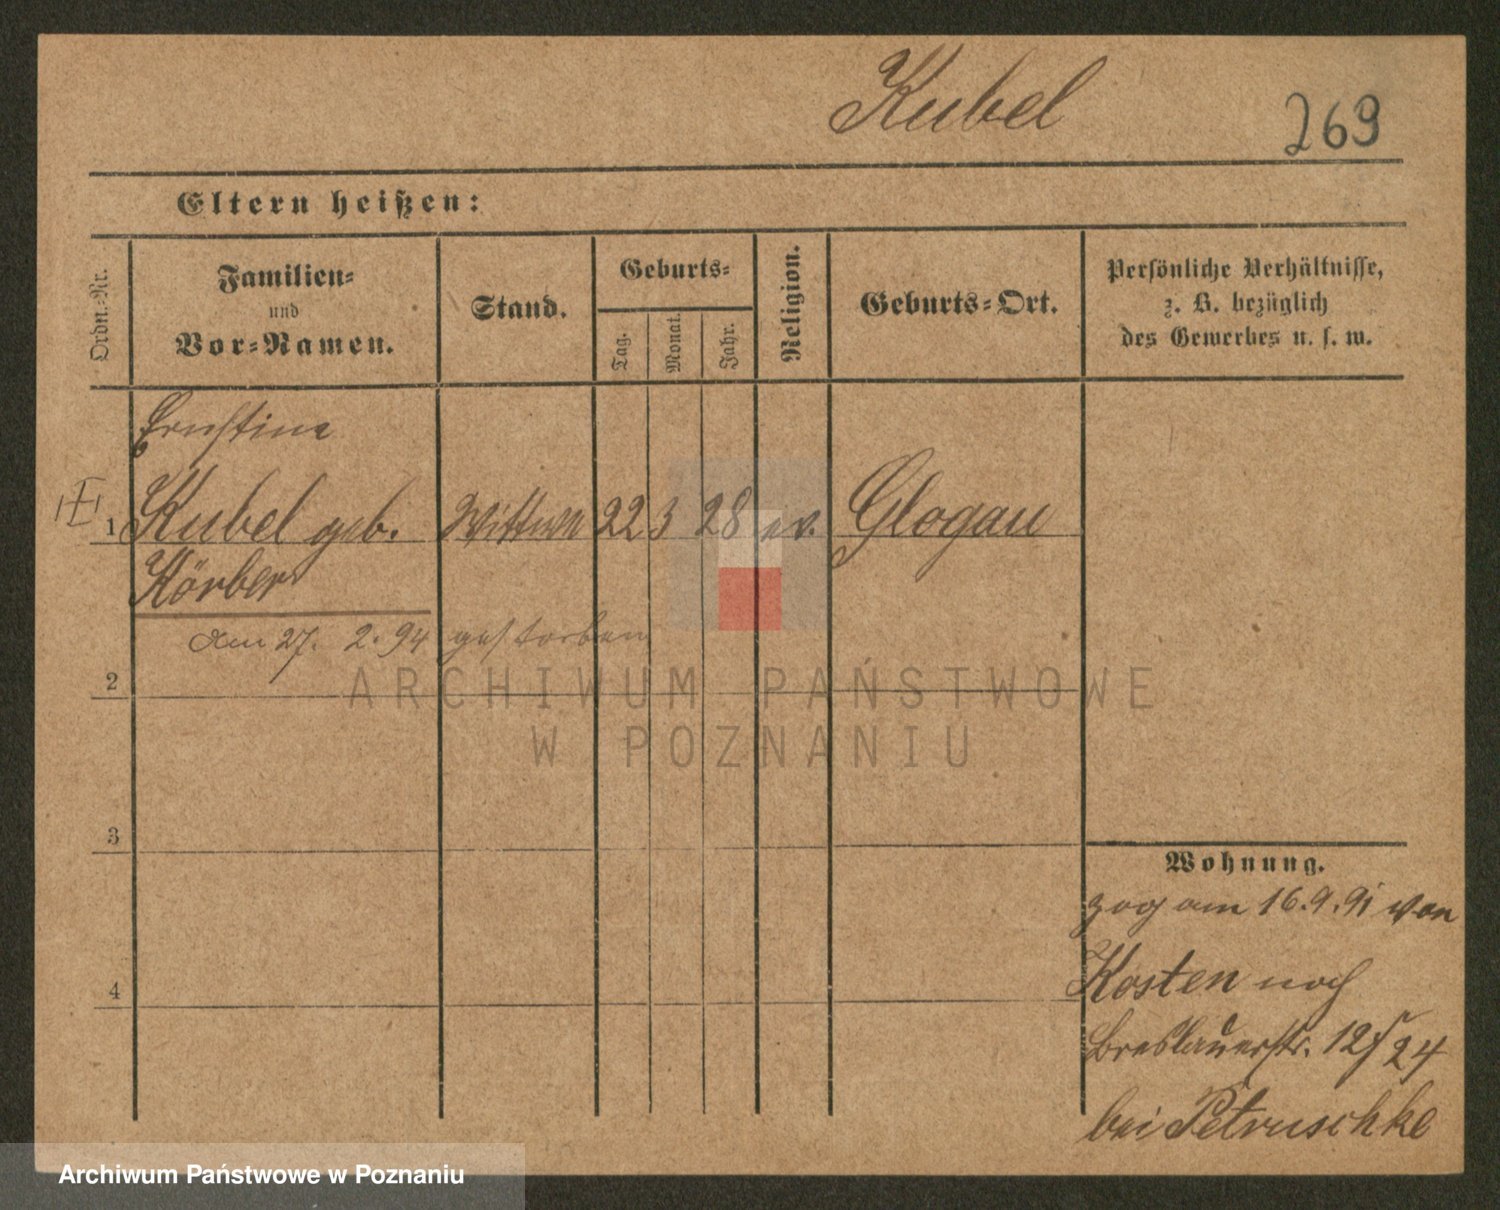 Kubel
269
Eltern heißen:
Ordn.-Nr.
Familien-
und
Vor-Namen.
Stand.
Geburts-
Tag.
Monat.
Jahr.
Religion.
Geburts-Ort.
Persönliche Verhältnisse,
z. B. bezüglich
des Gewerbes u. s. w.
Ernstine
1 Kubel geb. Wittwe 22 3 28 ev. Glogau
Körber
am 27. 2. 94 gestorben
2
ARCHIWUM PAŃSTWOWE
W POZNANIU
3
4
Wohnung.
zog am 16.9.91 von
Kosten nach
Breslauerstr. 12/24
bei Petruschke
Archiwum Państwowe w Poznaniu